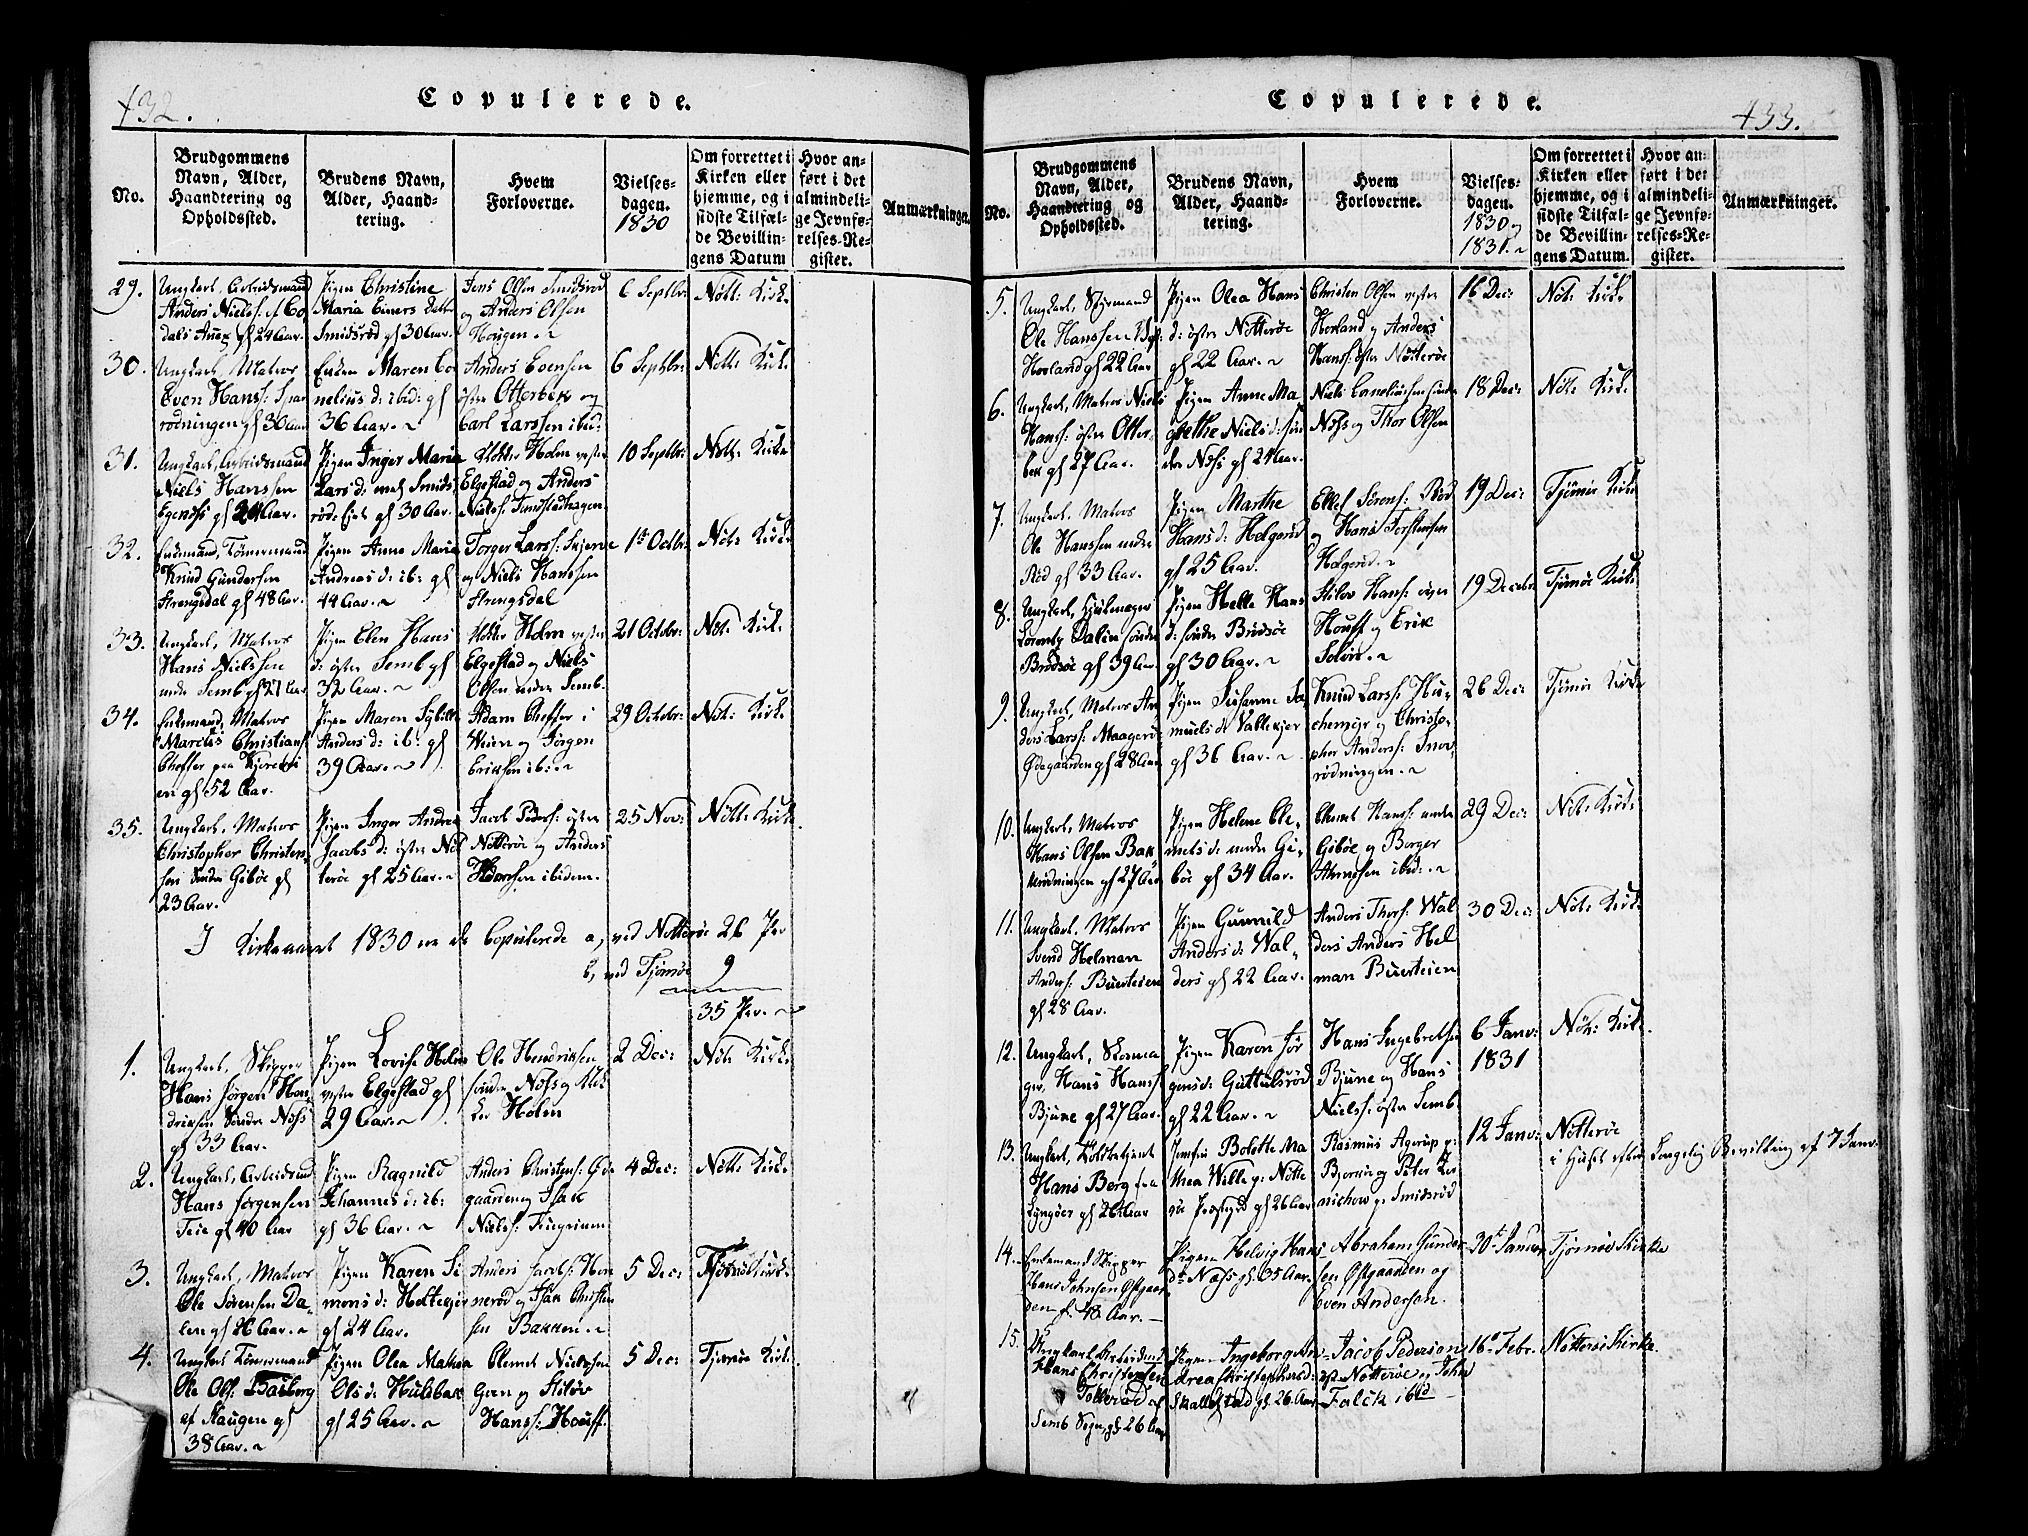 432.
Copulerede.
No.
Brudgommens
Navn, Alder,
Haandtering og
Opholdssted.
Brudens Navn,
Alder, Haand-
tering.
Hvem
Forloverne.
Vielses-
dagen.
1830
Om forrettet i
Kirken eller
hjemme, og i
sidste Tilfæl-
de Bevillin-
gens Datum
Hvor an-
ført i det
almindeli-
ge Jevnfø-
relses-Re-
gister.
Anmærkninger.
29.
Ungkarl, Arbeidsmand
Anders Nielss: af
gf 24 Aar.
Pigen Christine
Maria Einers datter
Smidsrød gf 30 Aar.
Jens Olsen Smidsrød
og Anders Olsen
Hougen
6 Septbr:
Nött: Kirke
30.
Ungkarl, Matros
Even Hanss:
rødningen gf 30 Aar
Enken Maren Co
nelius d: ibid: gf
36 Aar.
Anders Evensen
öster Otterbek og
Carl Larssen ibid:
6 Septbr:
Nött: Kirke
31.
Ungkarl, Arbeidsmand
Niels Hanssen
gf 24 Aar.
Pigen Inger Maria
Lars d: Smids
röd: Eiet gf 30 Aar.
Holm vester
Elgestad og Anders
Nielss:
10 Septbr:
Nött: Kirke
32.
Enkemand, Tömmermand
Knud Gundersen
Strengsdal gf 48 Aar.
Pigen Anne Maria
Andreas d: ib: gf
44 Aar.
Torger Larss:
og Niels Hanssen
Strengsdal
1ste Octbr:
Nöt: Kirke
33.
Ungkarl, Matros
Hans Nielssen
under Semb gf 27 Aar
Pigen Elen Hans
d: öster Semb gf
32 Aar.
Holm vester
Elgestad og Niels
Olsen under Semb.
21 Octobr:
Nöt: Kirke
34.
Enkemand, Matros
Marcus Christians:
Cheffer paa
en gf 52 Aar.
Pigen Maren Sybille
Anders d: ib: gf
39 Aar.
Adam Cheffer i
Veien og Jörgen
Eriksen ib:
29 Octobr:
Nöt: Kirke
35.
Ungkarl, Matros
Christopher Christen
sen Söndre Gipöe gf
23 Aar.
Pigen Inger Andrea
Jacobs d: öster Nöt
teröe gf 25 Aar.
Jacob Peders: öster
Nötteröe og Anders
ibidem.
25 Nov:
Nött: Kirke.
I Kirkeaaret 1830 ere Copulerede a, ved Nötteröe 26 Par
b, ved Tjömöe 9
35 Par.
1.
Ungkarl, Skipper
Hans Jörgen Hen
driksen Söndre Näss
gf 33 Aar.
Pigen Lovise Holm
vester Elgestad gf
29 Aar.
Ole Hendriksen
söndre Näss og
Holm
2 Dec:
Nöt: Kirke
2.
Ungkarl, Arbeidsmd
Hans Jörgensen
Teie gf 40 Aar
Pigen Ragnild
Johannes d: ib:
gf 36 Aar.
Anders Christens: Öde
gaarden og Isak
Nielss:
4 Dec:
Nött: Kirke
3.
Ungkarl, Matros
Ole Sörensen Da-
len gf 26 Aar.
Pigen Karen Si
mons d: Holtekjær
gf 24 Aar.
Anders Jacobs: Hon
neröd og Isak Christen
sen Bakken.
5 Dec:
Tjömöe Kirke
4.
Ungkarl Tömmermand
Ole Ols: Basberg
af Haugen gf
38 Aar.
Pigen Olea Mathea
Ols d: Hulebak
gf 25 Aar.
Clemet Nielssen
Gran og Stilöv
Hanss: Houff.
5 Dec:
Tjömöe Kirke.
Copulerede.
433.
No.
Brudgommens
Navn, Alder,
Haandtering og
Opholdssted.
Brudens Navn,
Alder, Haand-
tering.
Hvem
Forloverne.
Vielses-
dagen.
1830 og
1831.
Om forrettet i
Kirken eller
hjemme, og i
sidste Tilfæl-
de Bevillin-
gens Datum.
Hvor an-
ført i det
almindeli-
ge Jevnfø-
relses-Re-
gister.
Anmærkninger.
5.
Ungkarl, Styrmand
Ole Hanssen
Horland gf 22 Aar
Pigen Olea Hans
d: öster Nötteröe
gf 22 Aar.
Christen Olsen vestre
Horland og Anders
Hanss: öster Nötteröe
16 Dec:
Nöt: Kirke
6.
Ungkarl, Matros Niels
Hanss: öster Otter-
bek gf 27 Aar.
Pigen Anne Ma
grethe Niels d: sön
dre Näss gf 24 Aar.
Niels Corneliussen söndre
Näss og Thor Olsen
18 Dec:
Nöt: Kirke
7.
Ungkarl, Matros
Ole Hanssen under
Röd gf 33 Aar.
Pigen Marthe
Hans d: Holgeröd
gf 25 Aar.
Ellef Sörens: Röd
og Hans Torstensen
Holgeröd.
19 Dec:
Tjömöe Kirke
8.
Ungkarl,
Lorentz Dalin söndre
Brödsöe gf 39 Aar.
Pigen Helle Hans
d: söndre Brödsöe
gf 30 Aar.
Stilov Hans: övre
Houff og Erik
19 Decbr.
Tjömöe Kirke
9.
Ungkarl, Matros An
ders Larss: Maageröe
Ödegaarden gf 28 Aar
Pigen Susanne Sa
muels d: Vallekjer
gf 36 Aar.
Knud Larss:
og Christo-
pher Anderss:
rödningen.
26 Dec:
Tjömöe Kirke
10.
Ungkarl, Matros
Hans Olsen Bak
gf 27 Aar
Pigen Helene Cle-
mets d: under Gi-
böe gf 34 Aar.
Clemet Hanss: under
Giböe og Borger
ibid:
29 Dec:
Nöt: Kirke
11.
Ungkarl, Matros
Svend Helman
Anders: Buerteien
gf 28 Aar.
Pigen Gunnild
Anders d: Val-
ders gf 22 Aar.
Anders Thors: Val
ders Anders Hel
man Buerteien
30 Dec:
Nöt: Kirke
12.
Ungkarl, Skoma
ger, Hans Hanss:
Bjune gf 27 Aar.
Pigen Karen Jör
gens d: Guttulsröd
gf 22 Aar.
Hans Ingebretsen
Bjune og Hans
Nielss: öster Semb
6 Janv:
1831
Nöt: Kirke.
13.
Ungkarl, Toldbetjent
Hans Berg fra
Lyngöer gf 26 Aar
Jomfru Bolette Ma
thea Wille p: Nötte
röe Præstegrd gf 26 Aar
Rasmus Agerup p:
og Peter
p: Smidsröd
12 Janv:
Nötteröe
i Huset efter Kongelig Bevilling af 7 Janv:
14.
Enkemand Skipper
Hans Johnsen Östgaar
den f. 48 Aar.
Pigen Helvig Hans
dr Næss gf. 35 Aar.
Abraham Gunder
sen Östgaarden og
Even Andersen.
30te Januar
Tjömöe Kirke
15.
Ungkarl Arbeidsmd
Hans Christensen
Tolleröd af
Semb Sogn gf. 26 Aar
Pigen Ingeborg An
drea Christophersd:
Skallestad gf. 26 Aar
Jacob Pedersen
öst Nötteröe og John
Falck ibid
16de Febr.
Nötteröe Kirke.